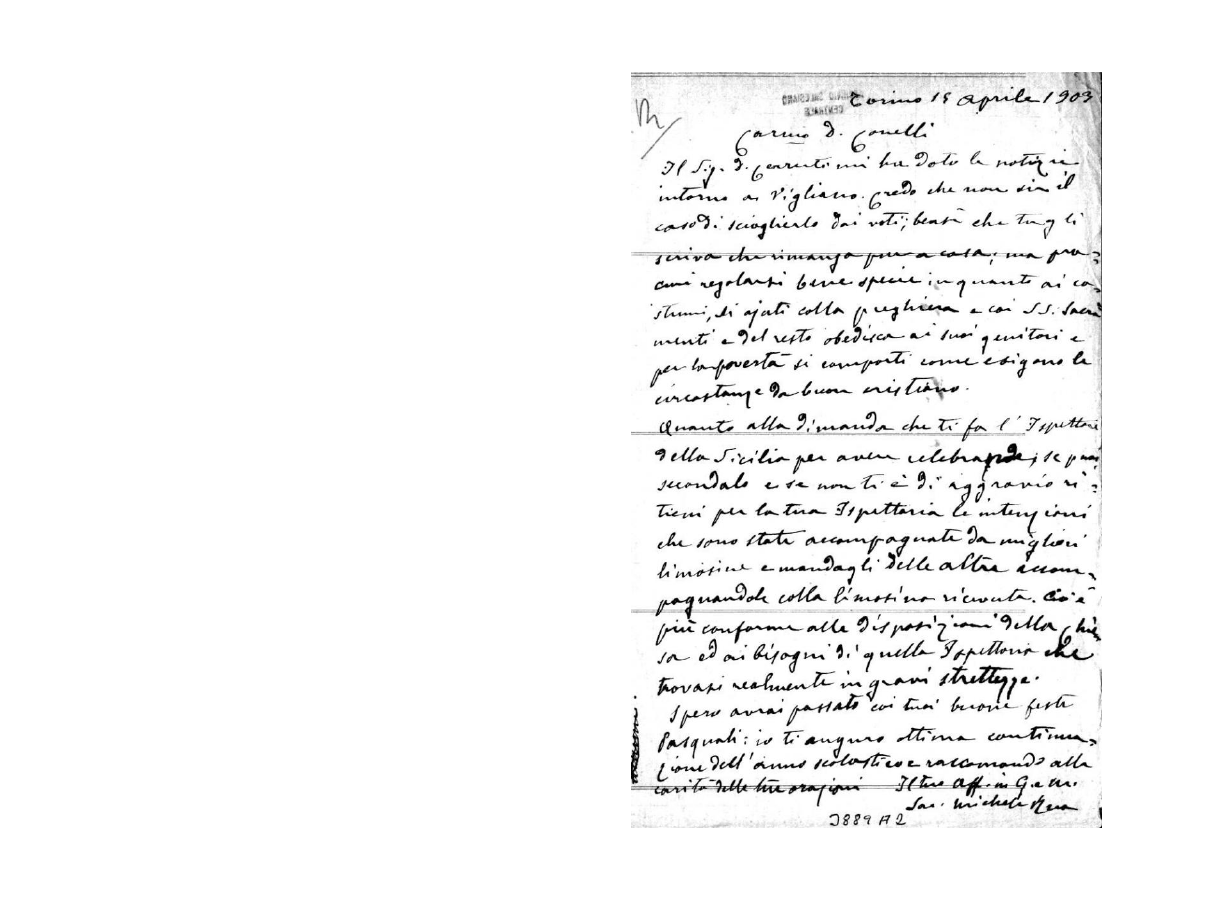 Torino 15 Aprile 1903
Carmo D. Conelli
Il Sig. D. Cerruti mi ha dato le notizie
intorno a Vigliano. Credo che non sia il
caso di scioglierlo dai voti; bensì che tu gli
scriva che rimanga pure a casa; ma pro=
curi regolarsi bene specie in quanto ai co=
stumi, si ajuti colla preghiera e coi S.S. Sacra
menti e del resto obedisca ai suoi genitori e
per la povertà si comporti come esigono le
circostanze da buon cristiano.
Quanto alla dimanda che ti fa l'Ispettore
della Sicilia per avere celebrande, se puoi
secondalo e se non ti è di aggravio ri=
tieni per la tua Ispettoria le intenzioni
che sono state accompagnate da migliori
limosine e mandagli delle altre accom=
pagnandole colla limosina ricevuta. Ciò è
più conforme alle disposizioni della Chie
sa ed ai bisogni di quella Ispettoria che
trovasi realmente in gravi strettezze.
Spero avrai passato coi tuoi buone feste
Pasquali: io ti auguro ottima continua=
zione dell'anno scolastico e raccomando alla
carità delle tue orazioni Il tuo aff. in G. e M.
Sac. Michele Rua
3889 A2